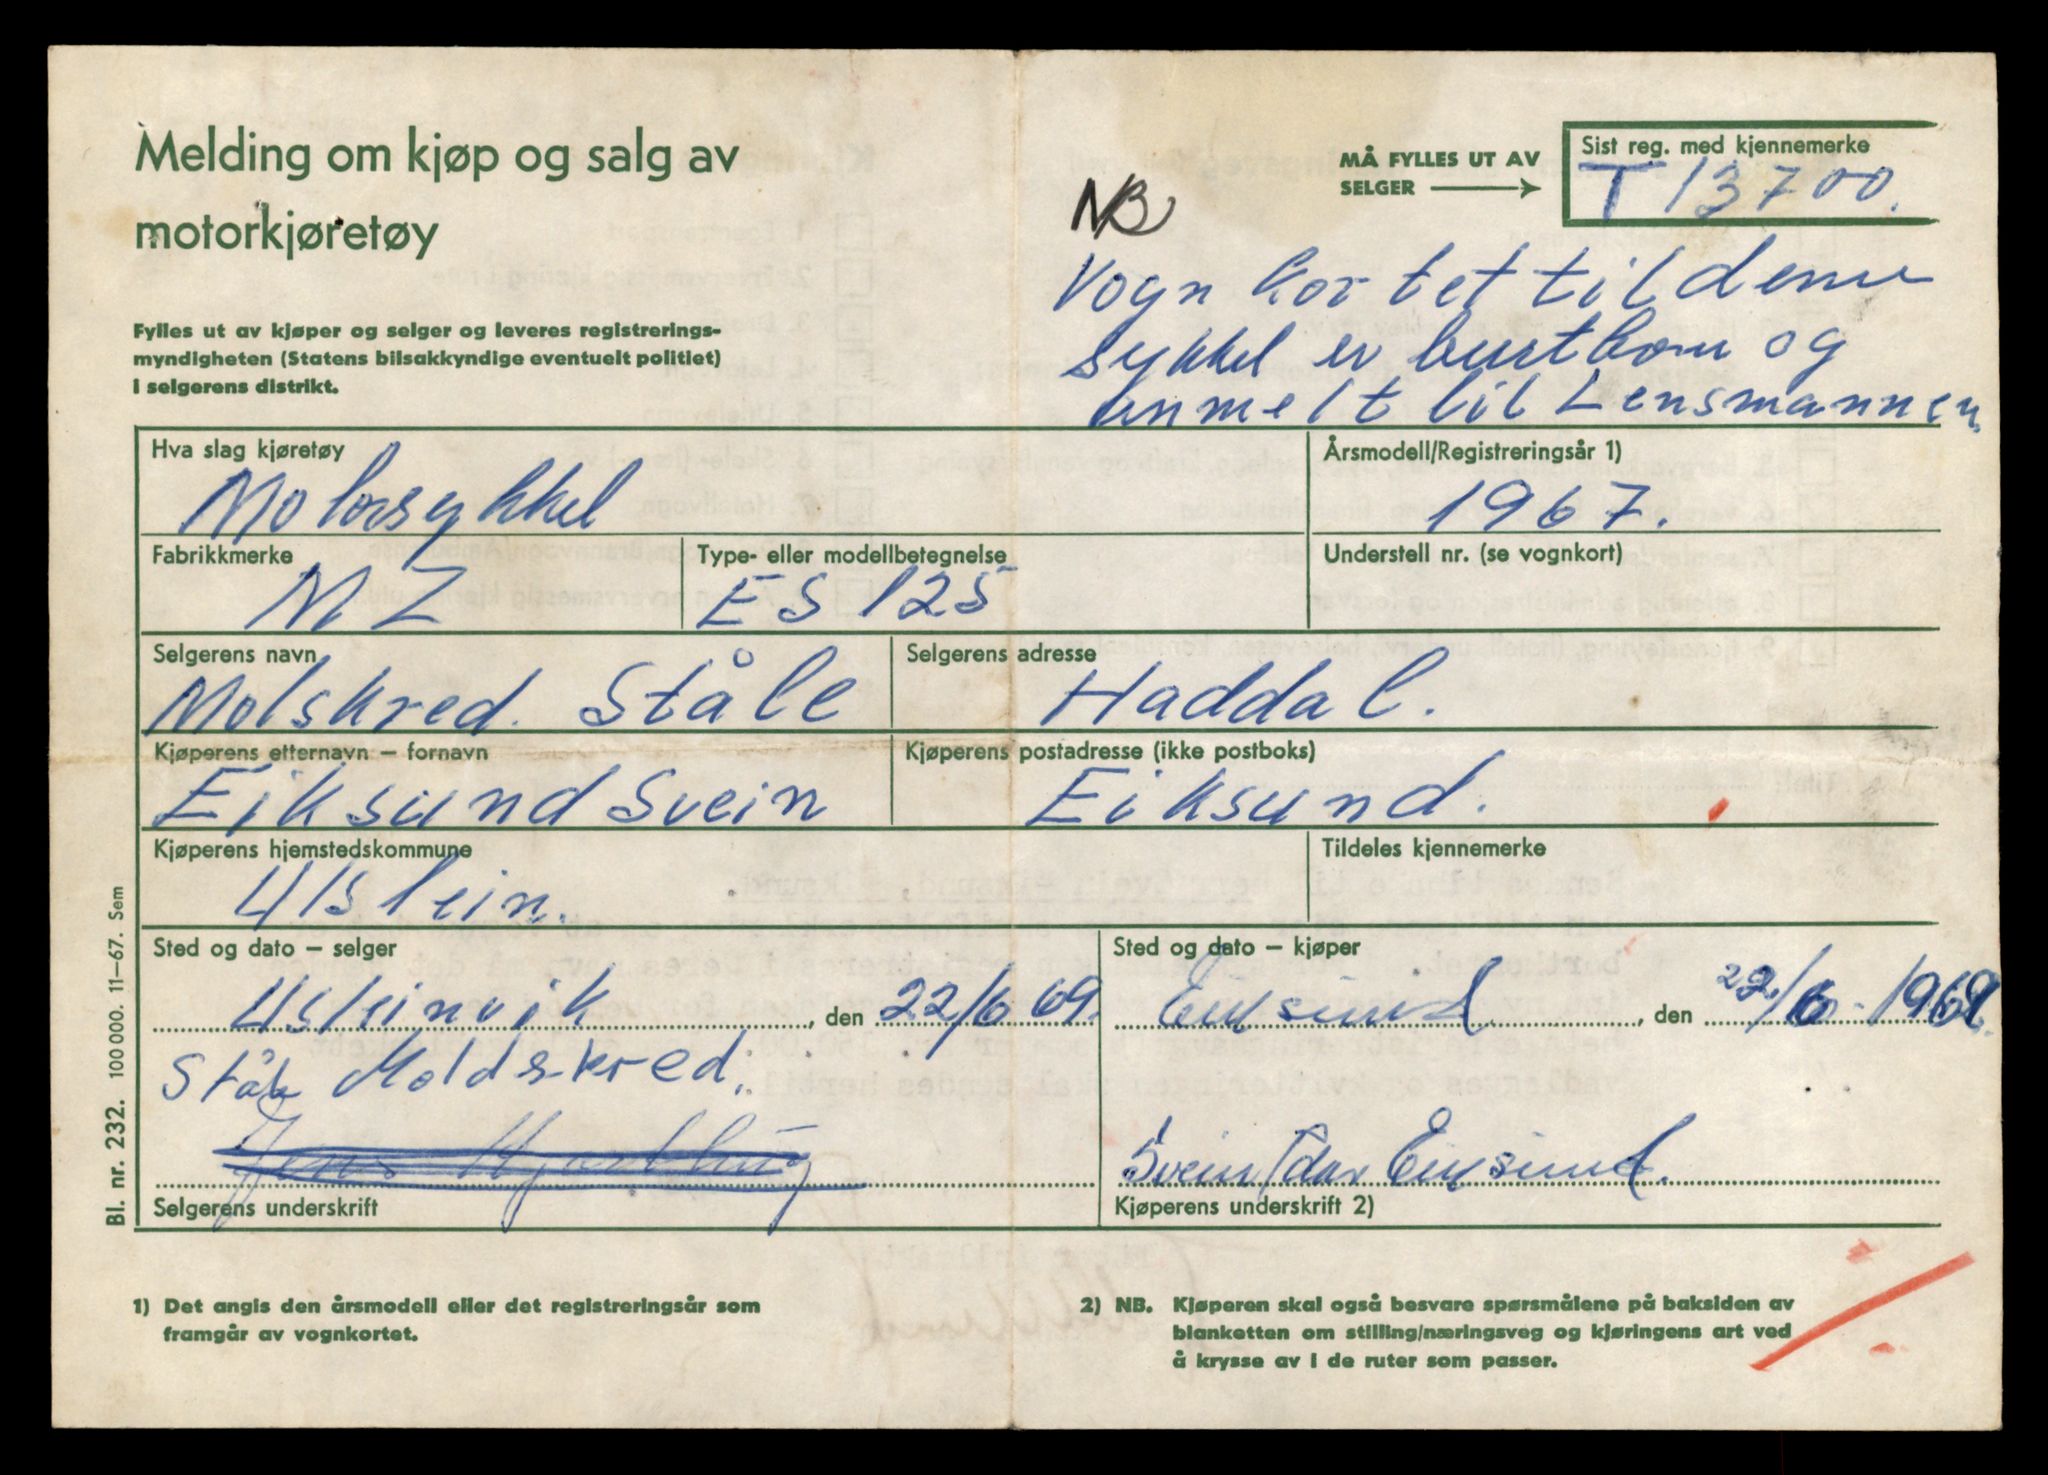 Melding om kjøp og salg av
motorkjøretøy
MÅ FYLLES UT AV
SELGER
Sist reg. med kjennemerke
T 13700.
NB
Vognkortet til denne
sykkel er burtkom og
anmelt til Lensmannen.
Fylles ut av kjøper og selger og leveres registrerings-
myndigheten (Statens bilsakkyndige eventuelt politiet)
i selgerens distrikt.
Hva slag kjøretøy
Motorsykkel
Årsmodell/Registreringsår 1)
1967.
Fabrikkmerke
M Z
Type- eller modellbetegnelse
ES 125
Understell nr. (se vognkort)
Selgerens navn
Molskred. Ståle
Selgerens adresse
Haddal.
Kjøperens etternavn – fornavn
Eiksund Svein
Kjøperens postadresse (ikke postboks)
Eiksund.
Kjøperens hjemstedskommune
Ulstein.
Tildeles kjennemerke
Sted og dato – selger
Ulsteinvik, den 22/6 69.
Ståle Moldskred.
Selgerens underskrift
Sted og dato – kjøper
Eiksund, den 22/6-1969.
Svein Idar Eiksund.
Kjøperens underskrift 2)
Bl. nr. 232. 100 000. 11–67. Sem
1) Det angis den årsmodell eller det registreringsår som
framgår av vognkortet.
2) NB. Kjøperen skal også besvare spørsmålene på baksiden av
blanketten om stilling/næringsveg og kjøringens art ved
å krysse av i de ruter som passer.